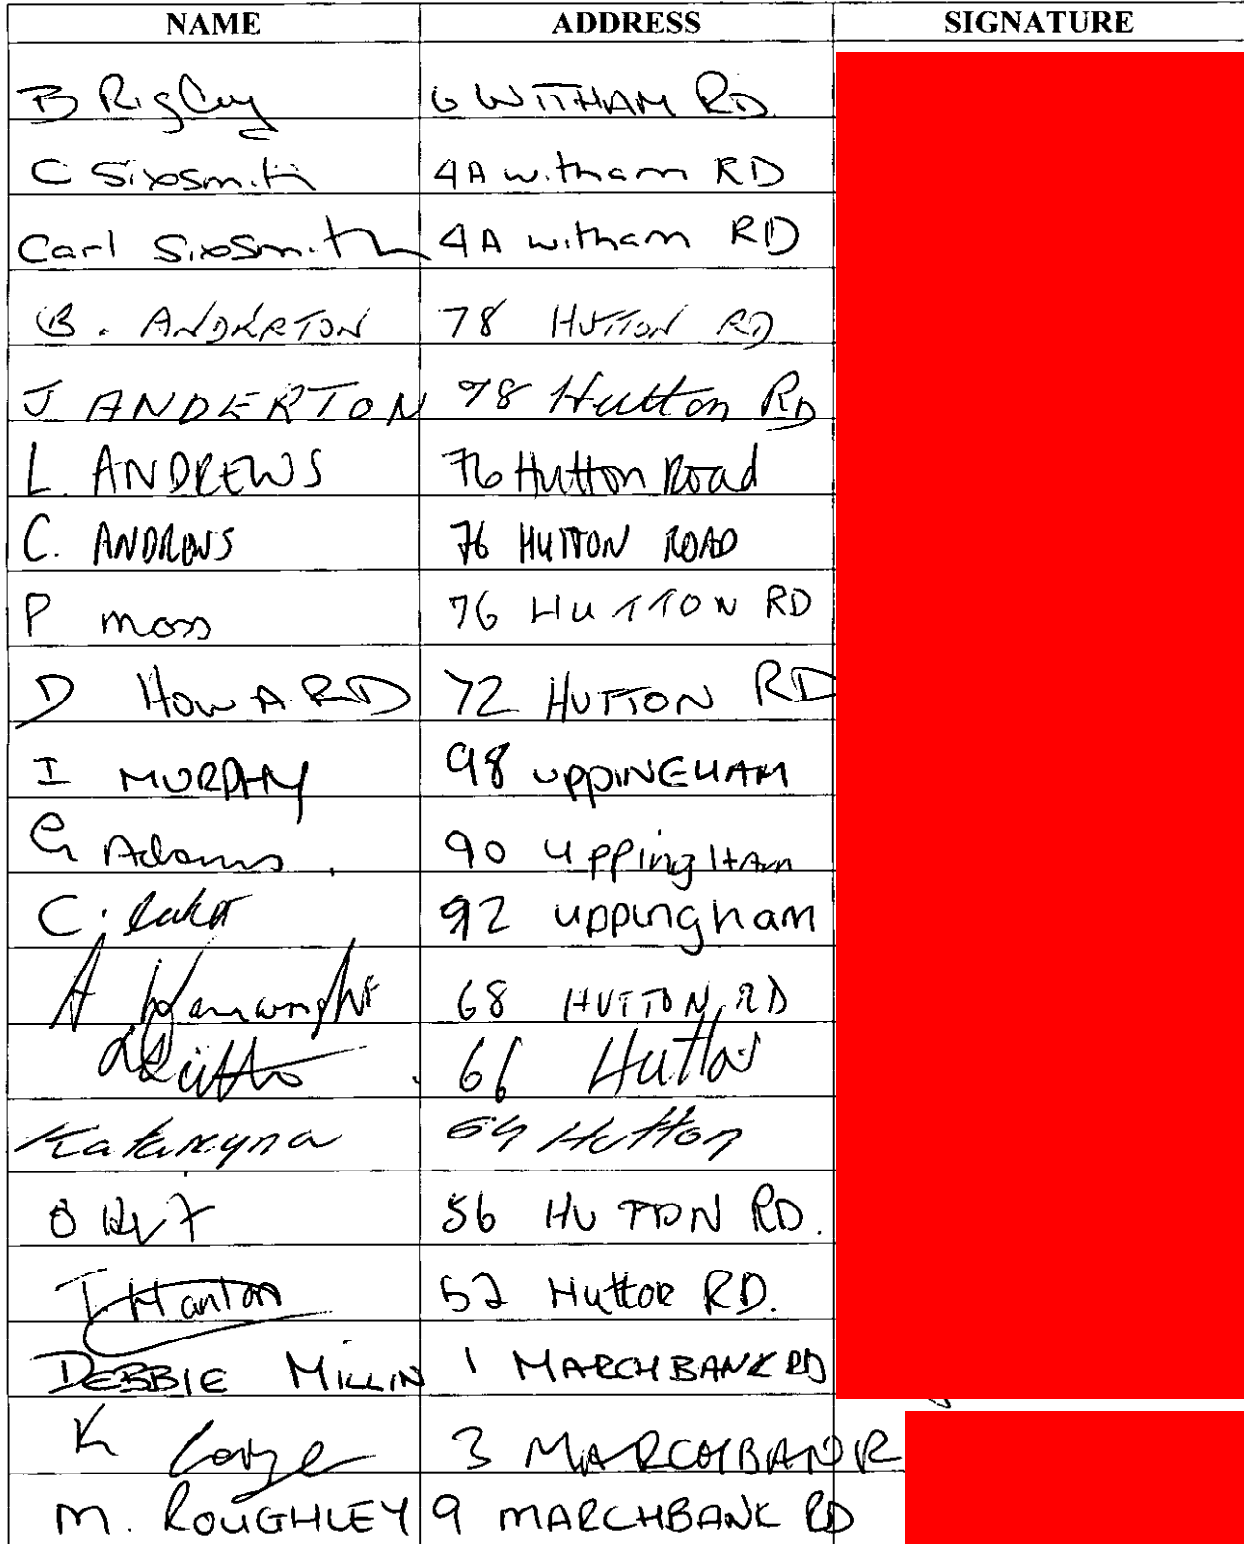 NAME ADDRESS SIGNATURE
B Rigby 6 WITHAM RD
C Sixsmith 4A witham RD
Carl Sixsmith 4A witham RD
B. ANDERTON 78 HUTTON RD
J ANDERTON 78 Hutton RD
L. ANDREWS 76 Hutton Road
C. ANDREWS 76 HUTTON ROAD
P moss 76 HUTTON RD
D HOWARD 72 HUTTON RD
I MURPHY 98 UPPINGHAM
G Adams. 90 UppingHam
C. 92 uppingham
A 68 HUTTON RD
66 Hutton
Katarzyna 64 Hutton
56 HUTTON RD.
T Hanlon 52 Hutton RD.
DEBBIE MILLIN 1 MARCHBANK RD
K 3 MARCHBANK
M. ROUGHLEY 9 MARCHBANK RD